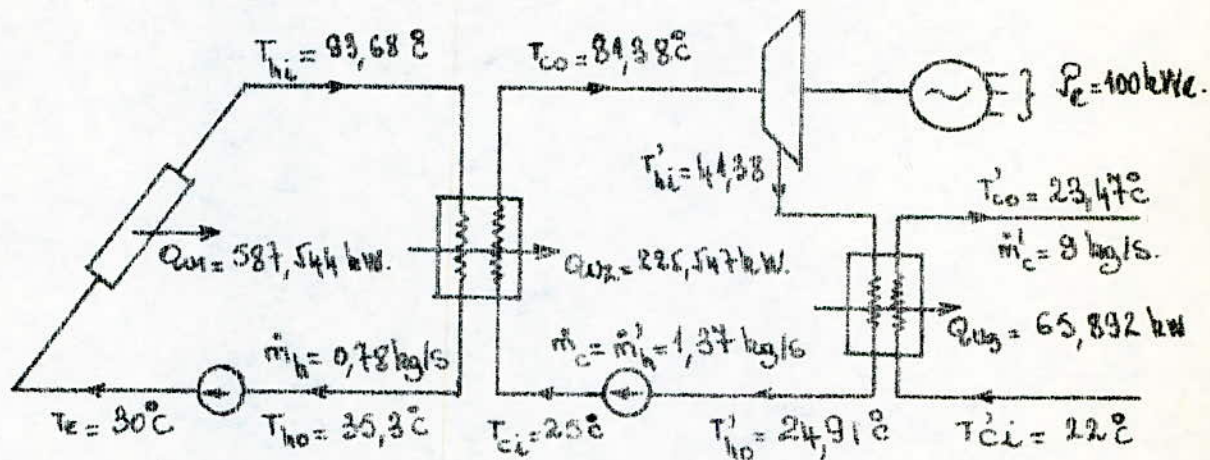 T_hi = 93,68 °C
T_co = 81,38 °C
P_e = 100 kWe.
T'_hi = 41,38
T'_co = 23,47 °C
ṁ'_c = 9 kg/s.
Q_u1 = 587,544 kW.
Q_u2 = 225,547 kW.
Q_u3 = 65,892 kW
ṁ_h = 0,78 kg/s
ṁ_c = ṁ'_h = 1,37 kg/s
T_e = 30 °C
T_ho = 35,3 °C
T_ci = 25 °C
T'_ho = 24,91 °C
T'_ci = 22 °C